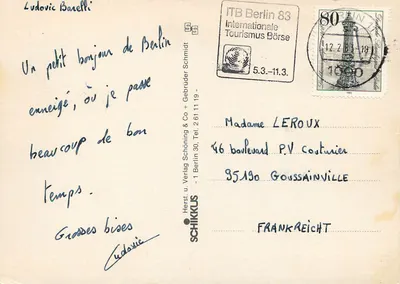 Ludovic Barelli
Un petit bonjour de Berlin
enneigé, où je passe
beaucoup de bon
temps.
Grosses bises
Ludovic
SCHIKKUS
Herst. u. Verlag Schöning & Co + Gebrüder Schmidt
1 Berlin 30, Tel. 2 61 11 19
ITB Berlin 83
Internationale
Tourismus Börse
5.3.-11.3.
80
1000
Madame LEROUX
46 boulevard P.V Couturier
95190 GOUSSAINVILLE
FRANKREICHT